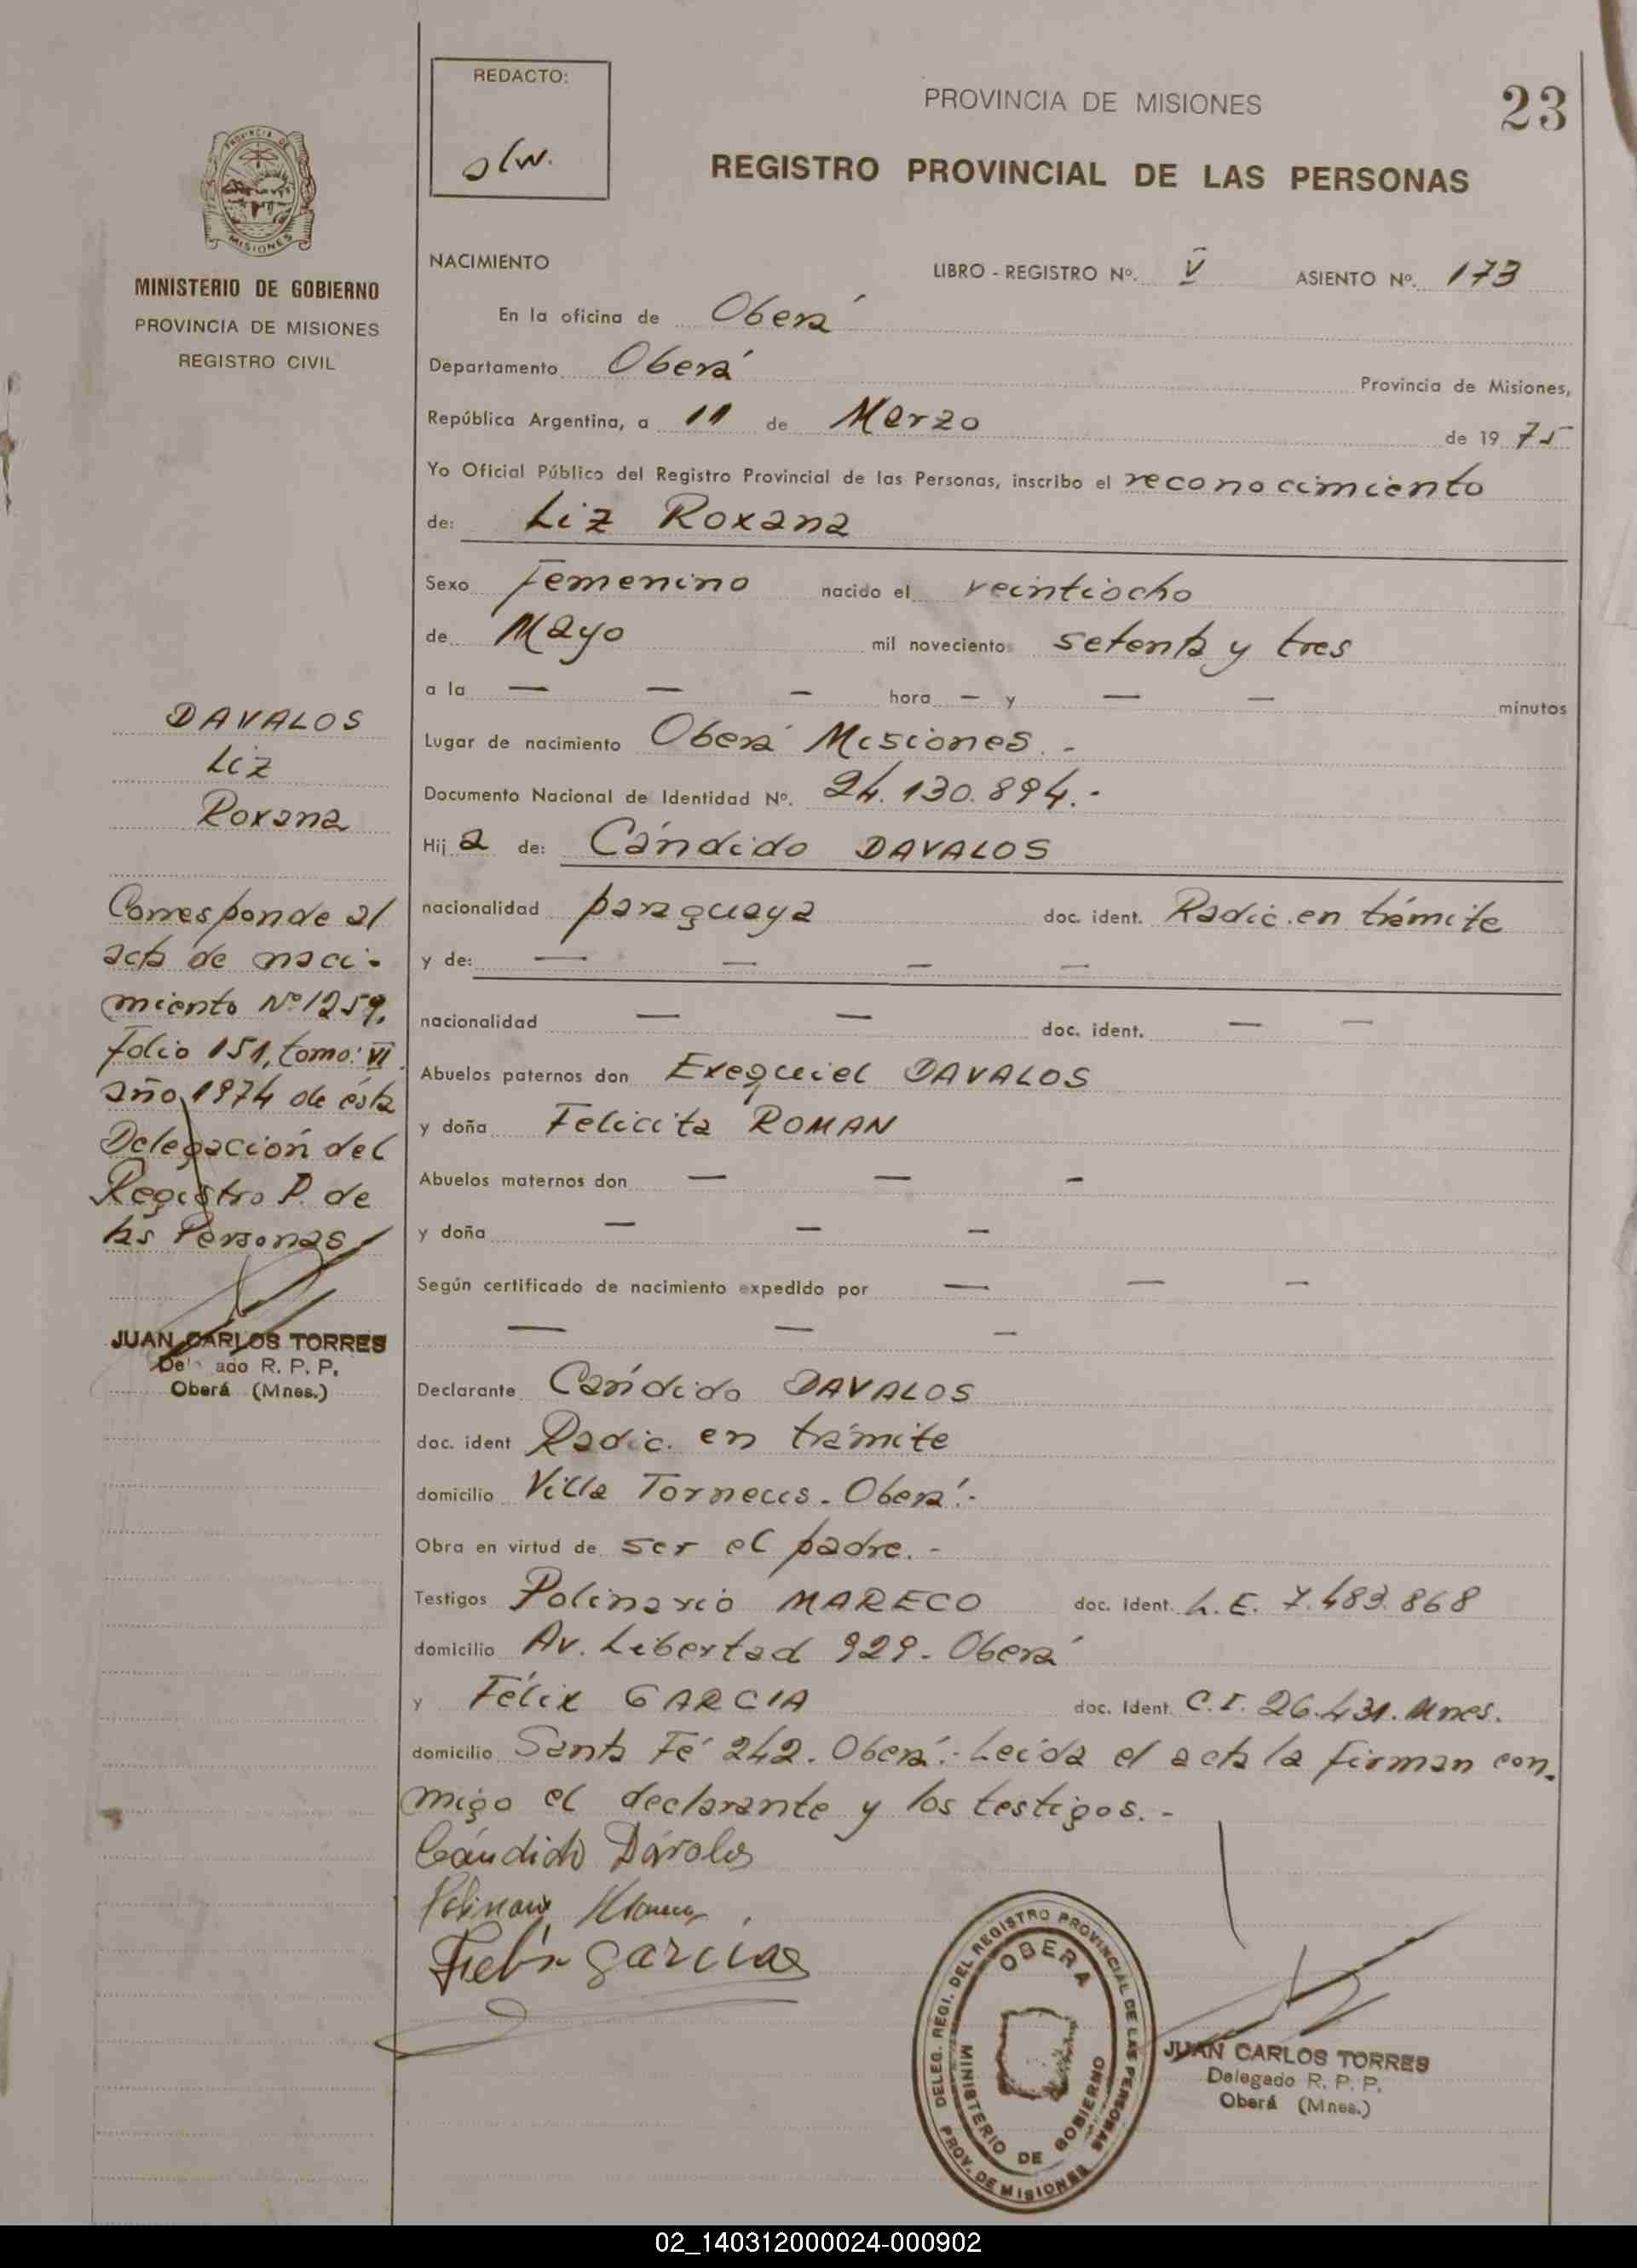 REDACTO:
PROVINCIA DE MISIONES
23
REGISTRO PROVINCIAL DE LAS PERSONAS
PROVINCIA DE
MISIONES
MINISTERIO DE GOBIERNO
PROVINCIA DE MISIONES
REGISTRO CIVIL
NACIMIENTO LIBRO - REGISTRO Nº. V ASIENTO Nº. 173
En la oficina de Oberá
Departamento Oberá Provincia de Misiones,
República Argentina, a 11 de Marzo de 1975
Yo Oficial Público del Registro Provincial de las Personas, inscribo el reconocimiento
de: Liz Roxana
Sexo Femenino nacido el veintiocho
de Mayo mil novecientos setenta y tres
a la — — — hora — y — — minutos
Lugar de nacimiento Oberá Misiones.-
Documento Nacional de Identidad Nº. 24.130.894.-
Hija de: Cándido DAVALOS
nacionalidad paraguaya doc. ident. Radic. en trámite
y de: — — — —
nacionalidad — — doc. ident. — —
Abuelos paternos don Exequiel DAVALOS
y doña Felicita ROMAN
Abuelos maternos don — — —
y doña — — —
Según certificado de nacimiento expedido por — — —
— — —
Declarante Cándido DAVALOS
doc. ident Radic. en trámite
domicilio Villa Torneus - Oberá.-
Obra en virtud de ser el padre.-
Testigos Polinario MARECO doc. ident. L.E. 7.483.868
domicilio Av. Libertad 929 - Oberá
y Félix GARCIA doc. Ident. C.I. 26.431. Mnes.
domicilio Santa Fé 242. Oberá.- Leída el acta la firman con-
migo el declarante y los testigos.-
Cándido Dávalos
Félix García
DAVALOS
Liz
Roxana
Corresponde al
acta de naci-
miento Nº 1259,
Folio 151, tomo: VI
año 1974 de ésta
Delegación del
Registro P. de
las Personas
JUAN CARLOS TORRES
Delegado R. P. P.
Oberá (Mnes.)
DELEG. REGI. DEL REGISTRO PROVINCIAL DE LAS PERSONAS
OBERA
MINISTERIO DE GOBIERNO
PROV. DE MISIONES
JUAN CARLOS TORRES
Delegado R. P. P.
Oberá (Mnes.)
02_140312000024-000902